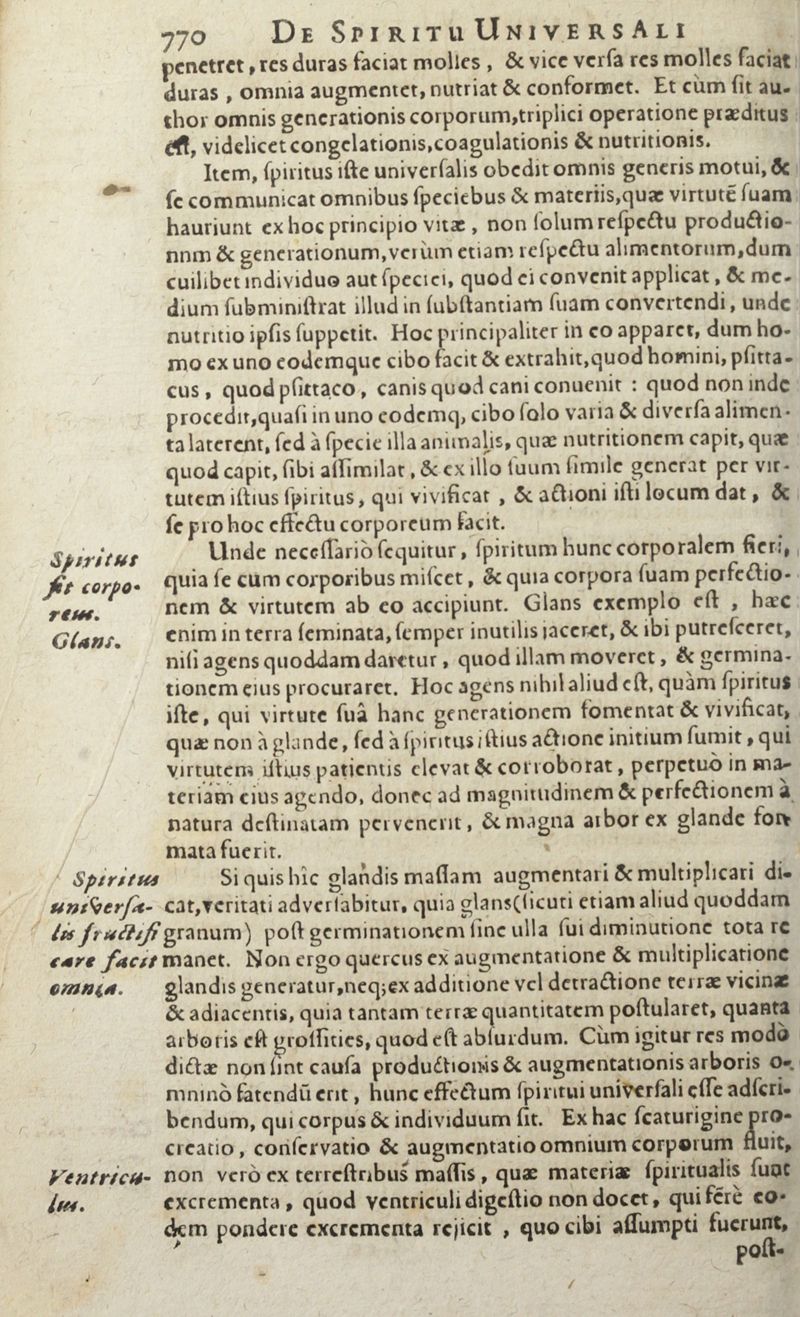 770 DE SPIRITU UNIVERSALI
penetret, res duras faciat molles, & vice versa res molles faciat
duras, omnia augmentet, nutriat & conformet. Et cùm sit au-
thor omnis generationis corporum, triplici operatione præditus
est, videlicet congelationis, coagulationis & nutritionis.
Item, spiritus iste universalis obedit omnis generis motui, &
se communicat omnibus speciebus & materiis, quæ virtutē suam
hauriunt ex hoc principio vitæ, non solum respectu productio-
nnm & generationum, verùm etiam respectu alimentorum, dum
cuilibet individuo aut speciei, quod ei convenit applicat, & me-
dium subministrat illud in substantiam suam convertendi, unde
nutritio ipsis suppetit. Hoc principaliter in eo apparet, dum ho-
mo ex uno eodemque cibo facit & extrahit, quod homini, psitta-
cus, quod psittaco, canis quod cani conuenit : quod non inde
procedit, quasi in uno eodemq, cibo solo varia & diversa alimen-
ta laterent, sed à specie illa animalis, quæ nutritionem capit, quæ
quod capit, sibi assimilat, & ex illo suum simile generat per vir-
tutem istius spiritus, qui vivificat, & actioni isti locum dat, &
se pro hoc effectu corporeum facit.
Spiritus
fit corpo-
reus.
Glans.
Unde necessariò sequitur, spiritum hunc corporalem fieri,
quia se cum corporibus miscet, & quia corpora suam perfectio-
nem & virtutem ab eo accipiunt. Glans exemplo est, hæc
enim in terra seminata, semper inutilis jaceret, & ibi putresceret,
nisi agens quoddam daretur, quod illam moveret, & germina-
tionem eius procuraret. Hoc agens nihil aliud est, quàm spiritus
iste, qui virtute suâ hanc generationem fomentat & vivificat,
quæ non à glande, sed à spiritus istius actione initium sumit, qui
virtutem istius patientis elevat & corroborat, perpetuò in ma-
teriam eius agendo, donec ad magnitudinem & perfectionem à
natura destinatam pervenerit, & magna arbor ex glande for-
mata fuerit.
Spiritus
universa-
lis fructifi
care facit
omnia.
Si quis hîc glandis massam augmentari & multiplicari di-
cat, veritati adversabitur, quia glans (sicuti etiam aliud quoddam
granum) post germinationem sine ulla sui diminutione tota re
manet. Non ergo quercus ex augmentatione & multiplicatione
glandis generatur, neq; ex additione vel detractione terræ vicinæ
& adiacentis, quia tantam terræ quantitatem postularet, quanta
arboris est grossities, quod est absurdum. Cùm igitur res modò
dictæ non sint causa productionis & augmentationis arboris o-
mninò fatendū erit, hunc effectum spiritui universali esse adscri-
bendum, qui corpus & individuum fit. Ex hac scaturigine pro-
creatio, conservatio & augmentatio omnium corporum fluit,
Ventricu-
lus.
non verò ex terrestribus massis, quæ materiæ spiritualis sunt
excrementa, quod ventriculi digestio non docet, qui ferè eo-
dem pondere excrementa rejicit, quo cibi assumpti fuerunt,
post-